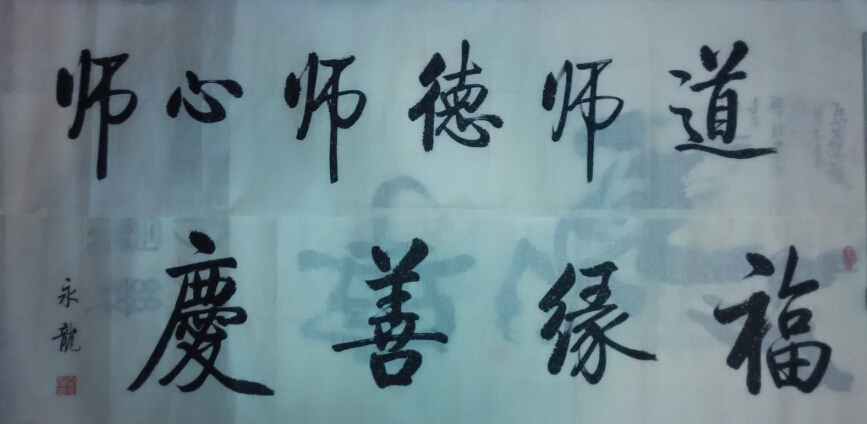 道师德师心师
福缘善慶
永龍